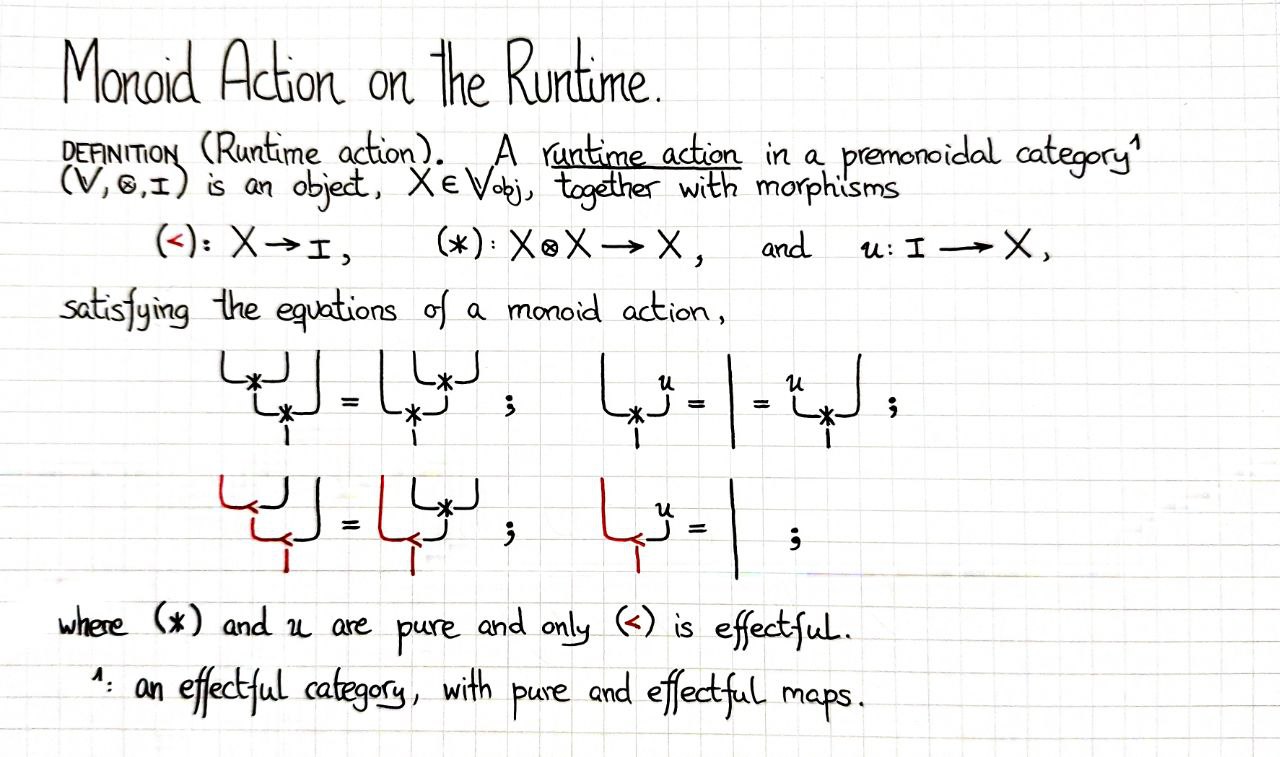 Monoid Action on the Runtime.
DEFINITION (Runtime action). A runtime action in a premonoidal category¹
(V, ⊗, I) is an object, X ∈ Vobj, together with morphisms
(<): X → I, (*): X ⊗ X → X, and u: I → X,
satisfying the equations of a monoid action,
* * = * * ; * u = | = u * ;
< < = * < ; < u = | ;
where (*) and u are pure and only (<) is effectful.
¹: an effectful category, with pure and effectful maps.